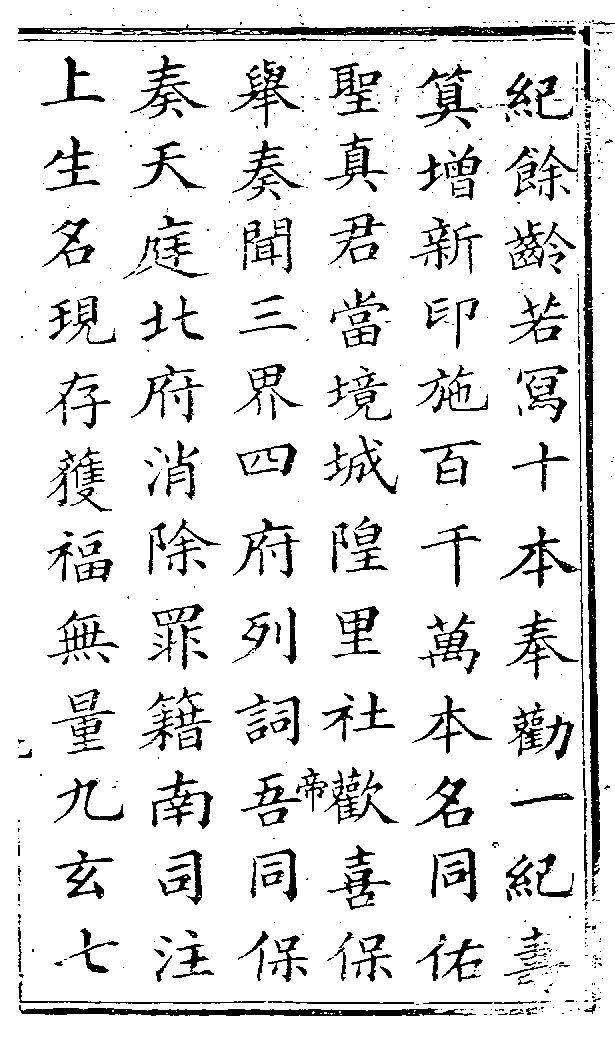 紀餘齡若冩十本奉勸一紀壽
筭增新印施百千萬本名同佑
聖真君當境城隍里社歡喜保
舉奏聞三界四府列詞吾帝同保
奏天庭北府消除罪籍南司注
上生名現存獲福無量九玄七